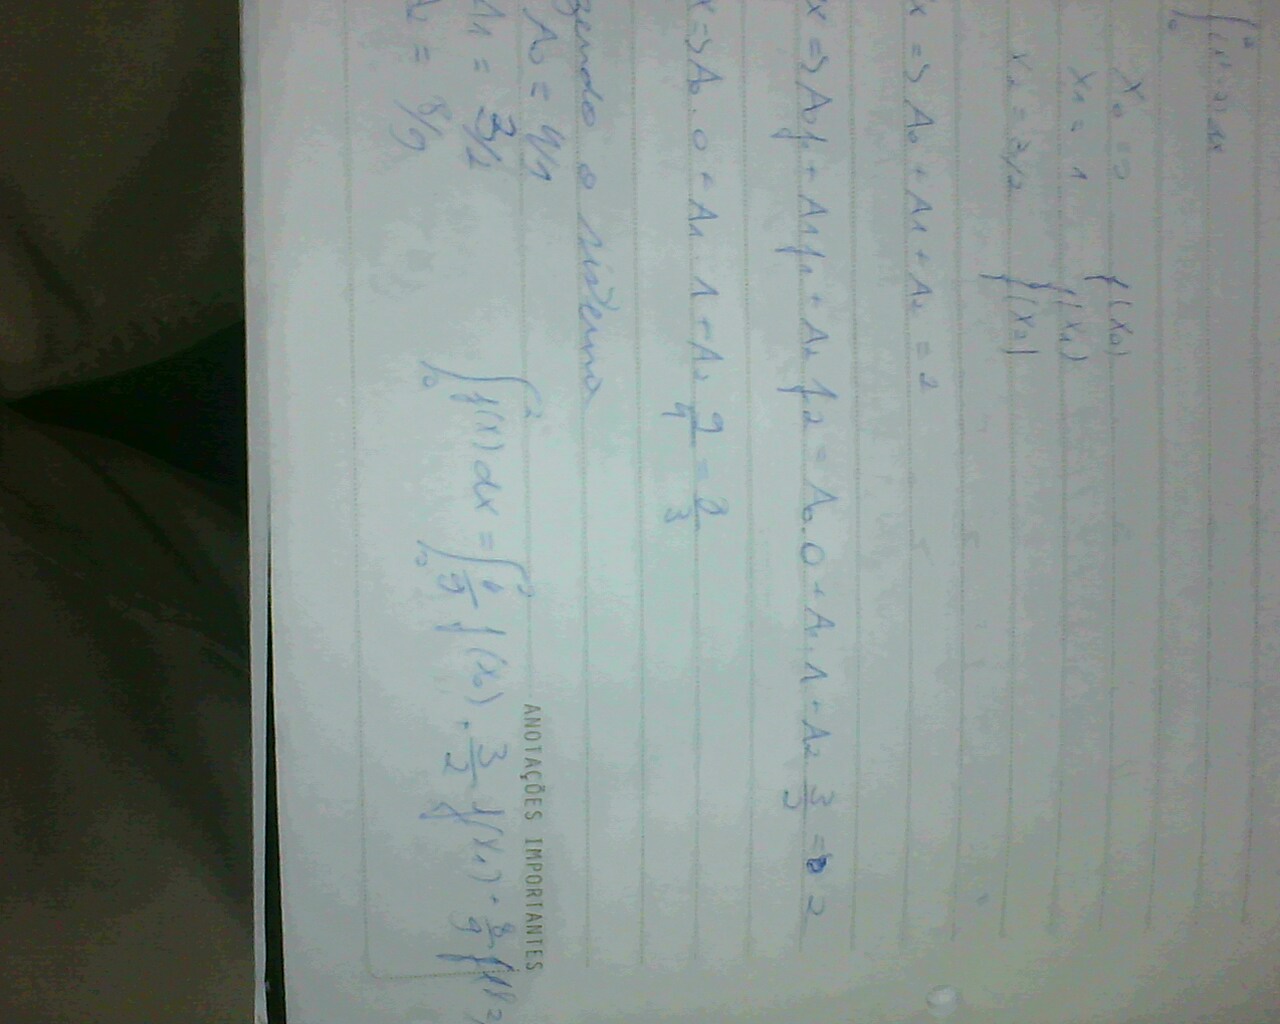 x₀ = 0 f(x₀)
x₁ = 1 f(x₁)
x₂ = 3/2 f(x₂)
x => A₀ + A₁ + A₂ = 2
x => A₀f₀ + A₁f₁ + A₂f₂ = A₀.0 + A₁.1 + A₂ 3/2 = 2
x => A₀.0 + A₁.1 + A₂ 9/4 =
zendo o sistema
A₀ =
A1 = 3/2
= 8/9
∫₀² f(x) dx = ∫₀² f(x₀) + 3/2 f(x₁) + 8/9 f(x₂)
ANOTAÇÕES IMPORTANTES